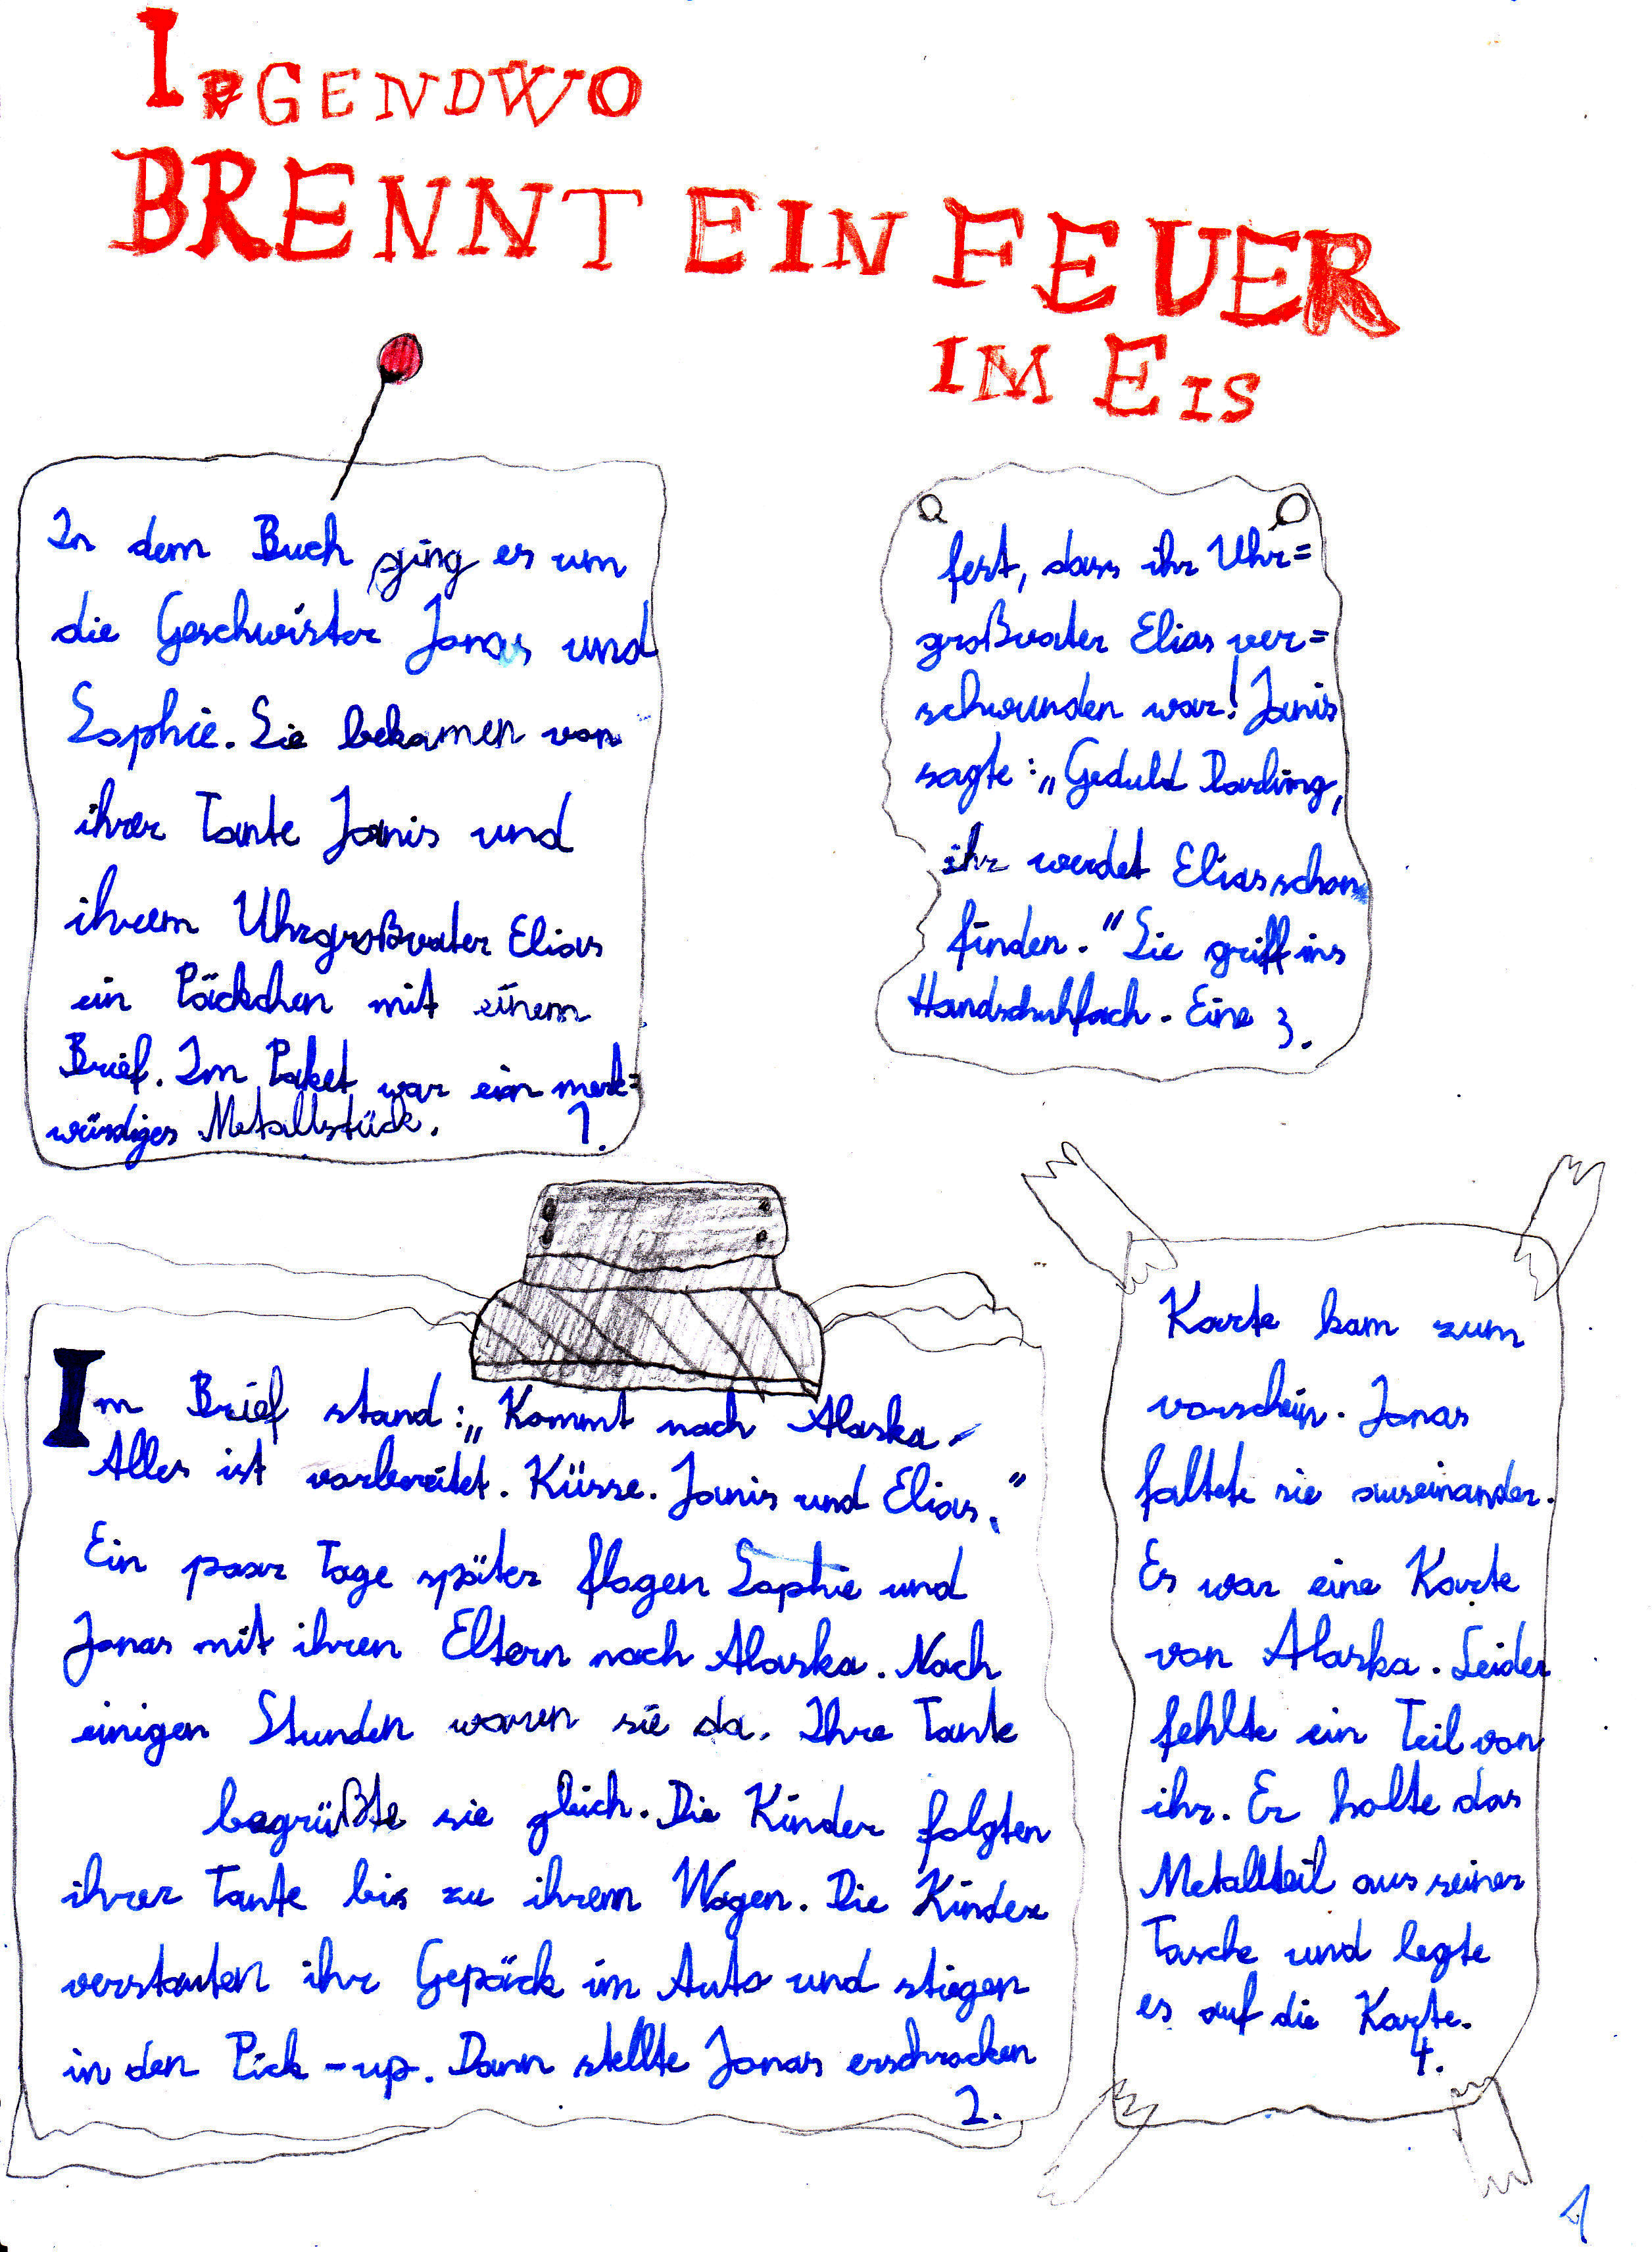 IRGENDWO
BRENNT EIN FEUER
IM EIS
In dem Buch ging es um
die Geschwister Jonas und
Sophie. Sie bekamen von
ihrer Tante Janis und
ihrem Uhrgroßvater Elias
ein Päckchen mit einem
Brief. Im Paket war ein merk=
würdiges Metallstück.
1.
Im Brief stand: „Kommt nach Alaska.
Alles ist vorbereitet. Küsse. Janis und Elias."
Ein paar Tage später flogen Sophie und
Jonas mit ihren Eltern nach Alaska. Nach
einigen Stunden waren sie da. Ihre Tante
begrüßte sie gleich. Die Kinder folgten
ihrer Tante bis zu ihrem Wagen. Die Kinder
verstauten ihr Gepäck im Auto und stiegen
in den Pick-up. Dann stellte Jonas erschrocken
2.
fest, dass ihr Uhr=
großvater Elias ver=
schwunden war! Janis
sagte: „Geduld Darling,
ihr werdet Elias schon
finden." Sie griff ins
Handschuhfach. Eine 3.
Karte kam zum
vorschein. Jonas
faltete sie auseinander.
Es war eine Karte
von Alaska. Leider
fehlte ein Teil von
ihr. Er holte das
Metallteil aus seiner
Tasche und legte
es auf die Karte.
4.
1